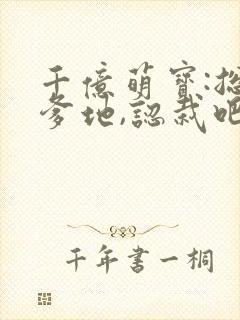 千億萌寶:總
爹地,認栽吧
千年書一桐